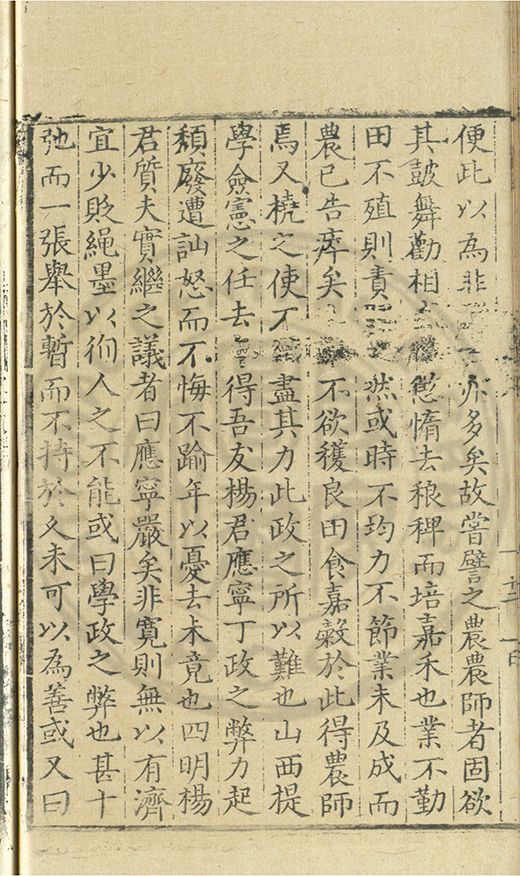 便此以為非亦多矣故嘗譬之農農師者固欲
其鼓舞勸相懲惰去稂稗而培嘉禾也業不勤
田不殖則責然或時不均力不節業未及成而
農已告瘁矣不欲穫良田食嘉穀於此得農師
焉又橈之使不盡其力此政之所以難也山西提
學僉憲之任去得吾友楊君應寧丁政之弊力起
頹廢遭訕怒而不悔不踰年以憂去未竟也四明楊
君質夫實繼之議者曰應寧嚴矣非寬則無以有濟
宜少貶繩墨以徇人之不能或曰學政之弊也甚十
弛而一張舉於暫而不持於久未可以為善或又曰